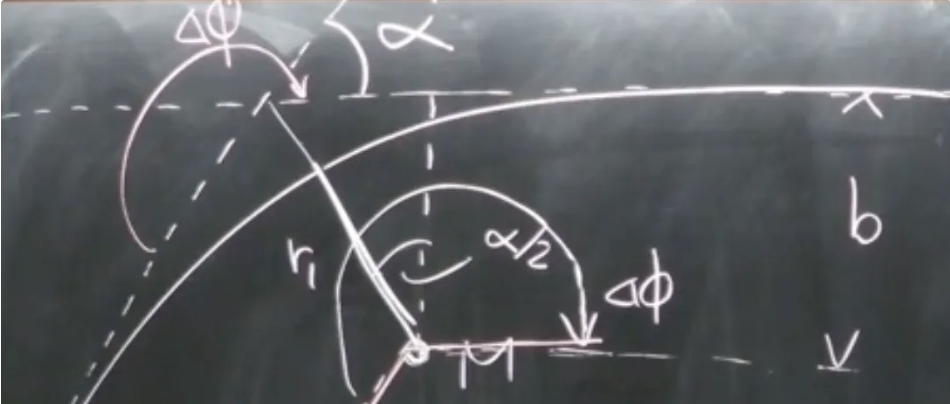 Δϕ
α
b
r₁
α/2
Δϕ
M